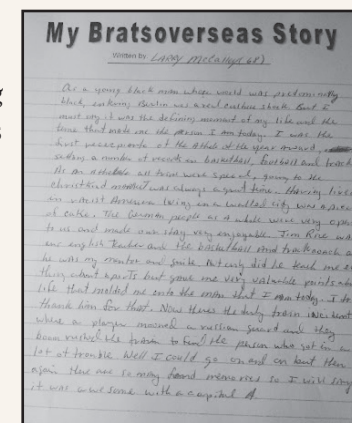 My Bratsoverseas Story
Written by LARRY McCathy(68)
As a young black man whose world was predominatly
black, entering Berlin was a real culture shock. But I
must say it was the defining moment of my life and the
time that made me the person I am today. I was the
first recepient of the Athlete of the year award,
setting a number of records in basketball, football and track
As an athlete all trips were special, going to the
christkind market was always a good time. Having lived
in American being in a walled city was a piece
of cake. The German people as a whole were very open
to us and made our stay very enjoyable. Jim Rice was
our english teacher and the basketball and track coach a
he was my mentor and guide. Not only did he teach me
thing about sports but gave me very valuable points
life that molded me into the man that I am today. I do
thank him for that. Now theres the duty train incident
where a player mooned a russian guard and they
the train to find the person who got in a
lot of trouble. Well I could go on and on but then
again there are so many fond memories so I wish
it was awesome with a capital A.